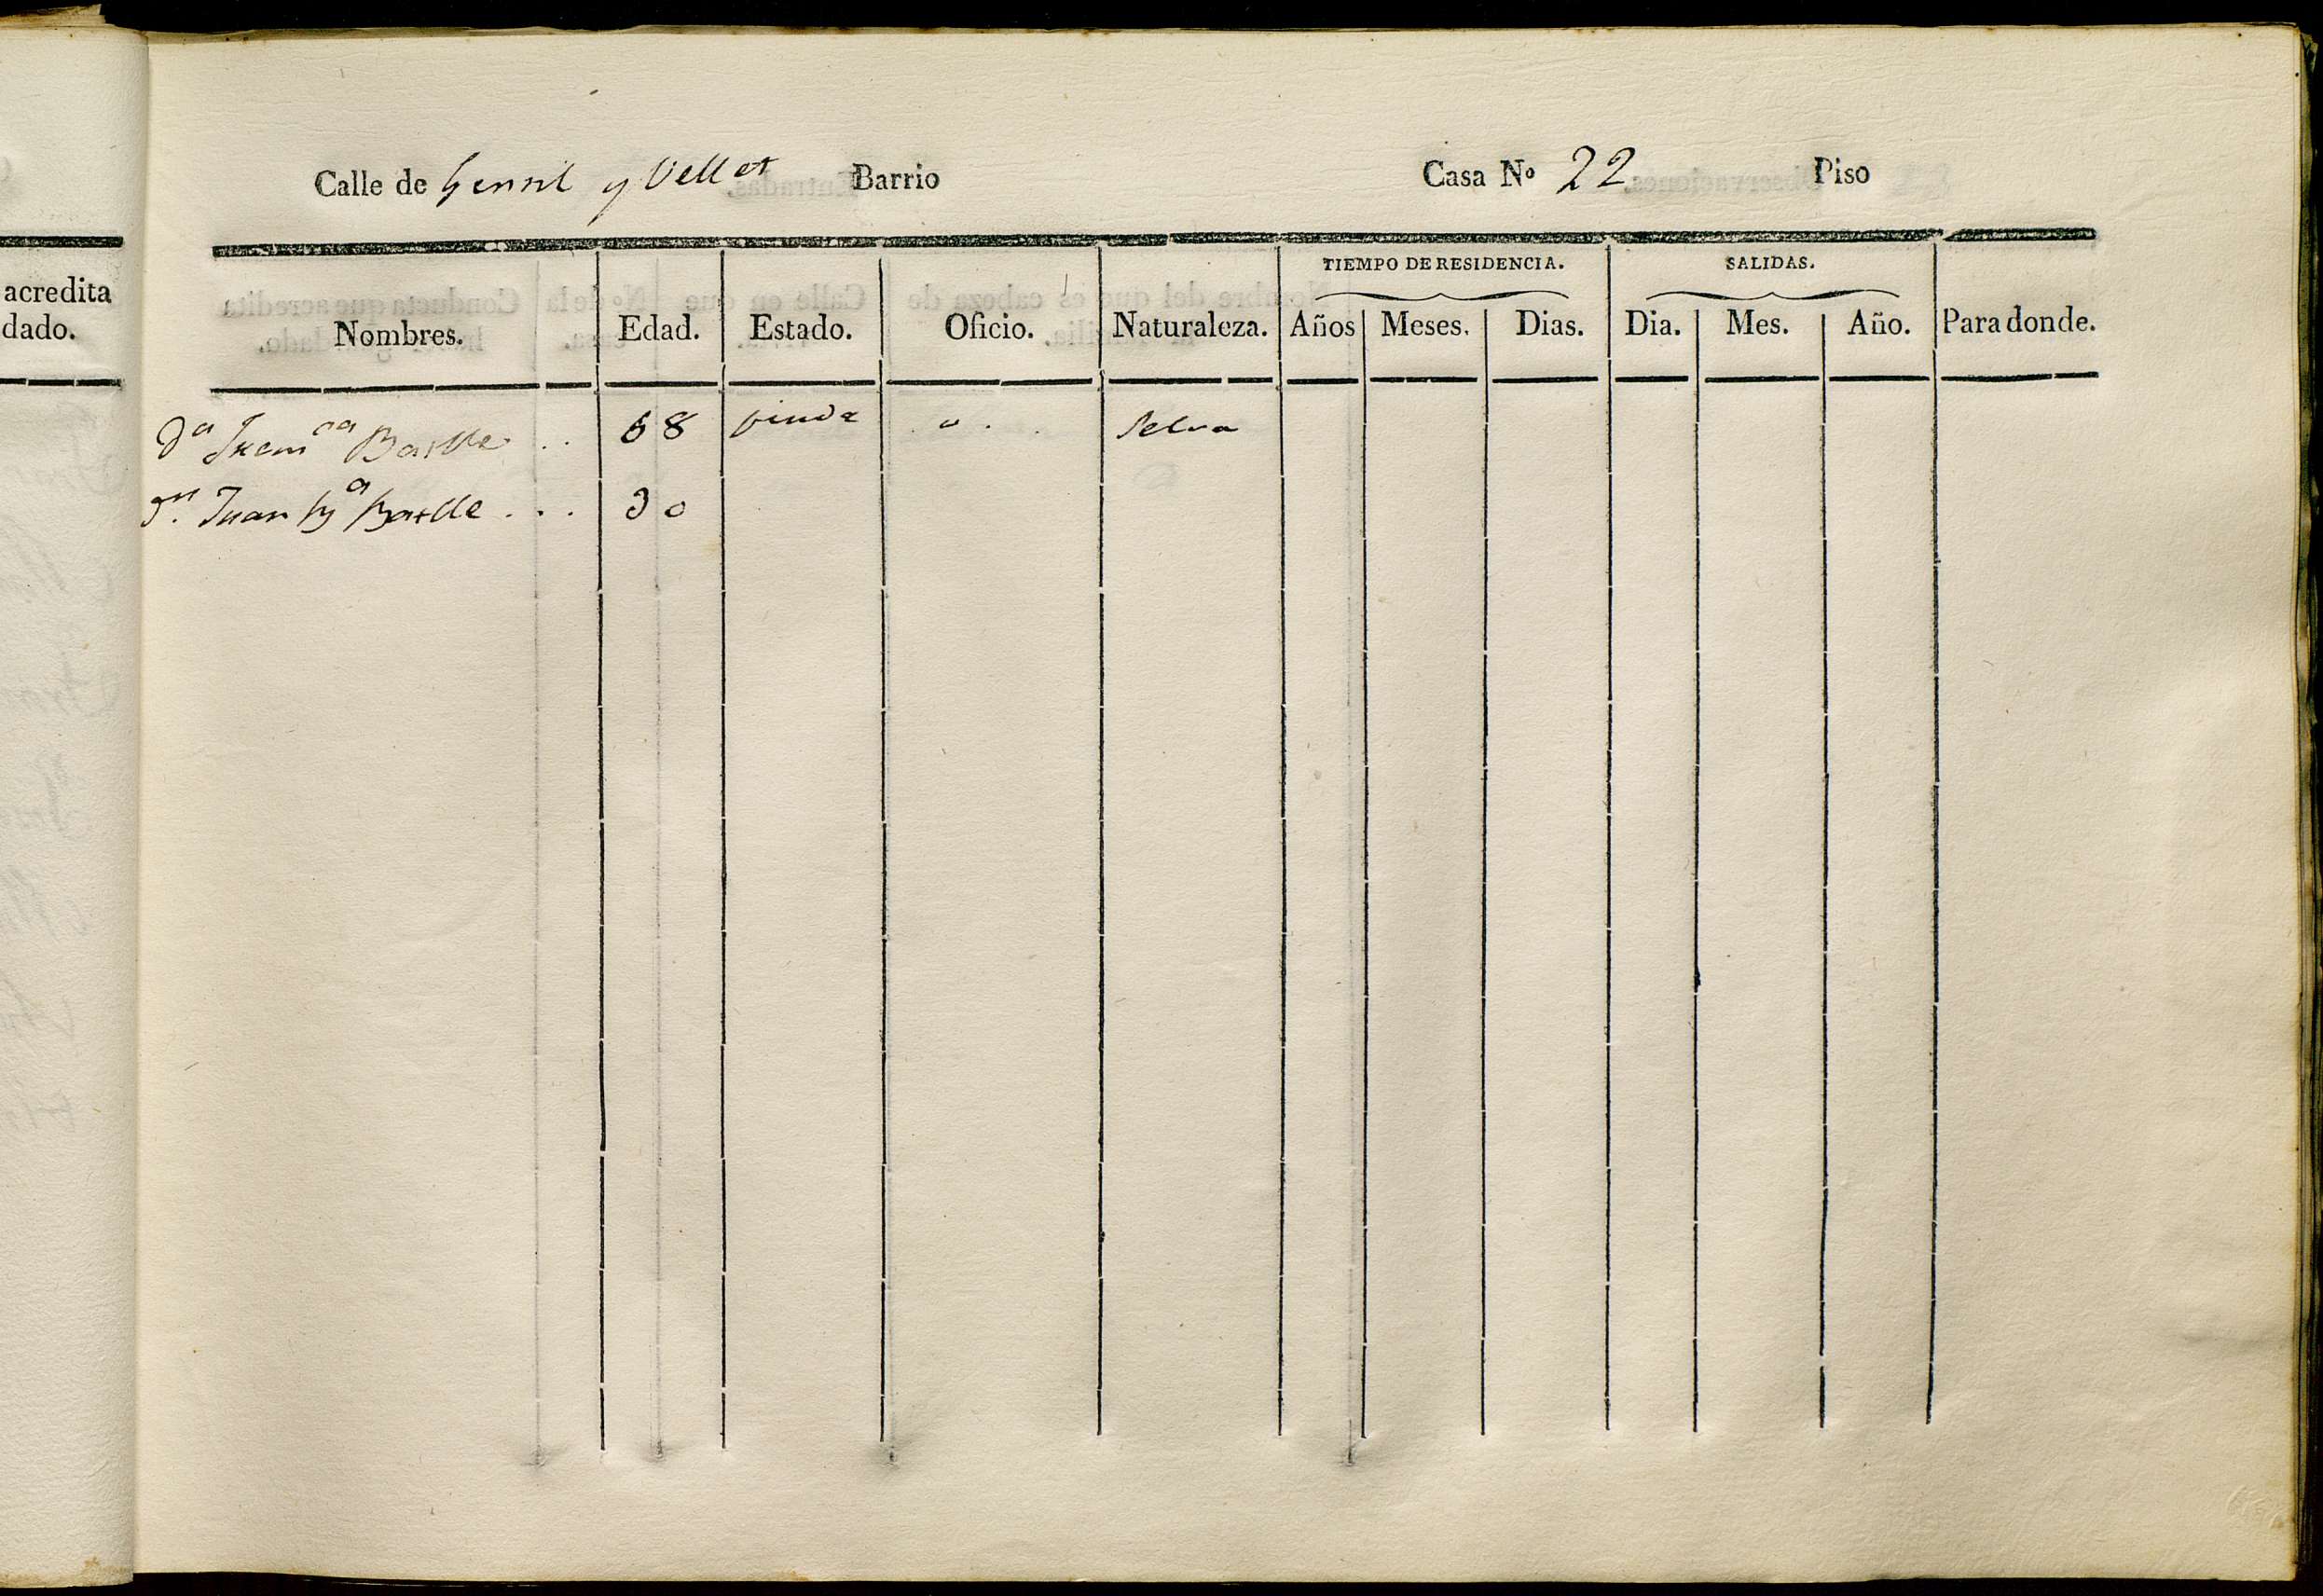 acredita
dado.
Calle de Gensil y Vellet Barrio Casa Nº 22 Piso
TIEMPO DE RESIDENCIA. SALIDAS.
Nombres. Edad. Estado. Oficio. Naturaleza. Años Meses. Dias. Dia. Mes. Año. Para donde.
Dª Batlle . . 68 viuda " . . Selva
Dn. Juan Bª Batlle . . . 30